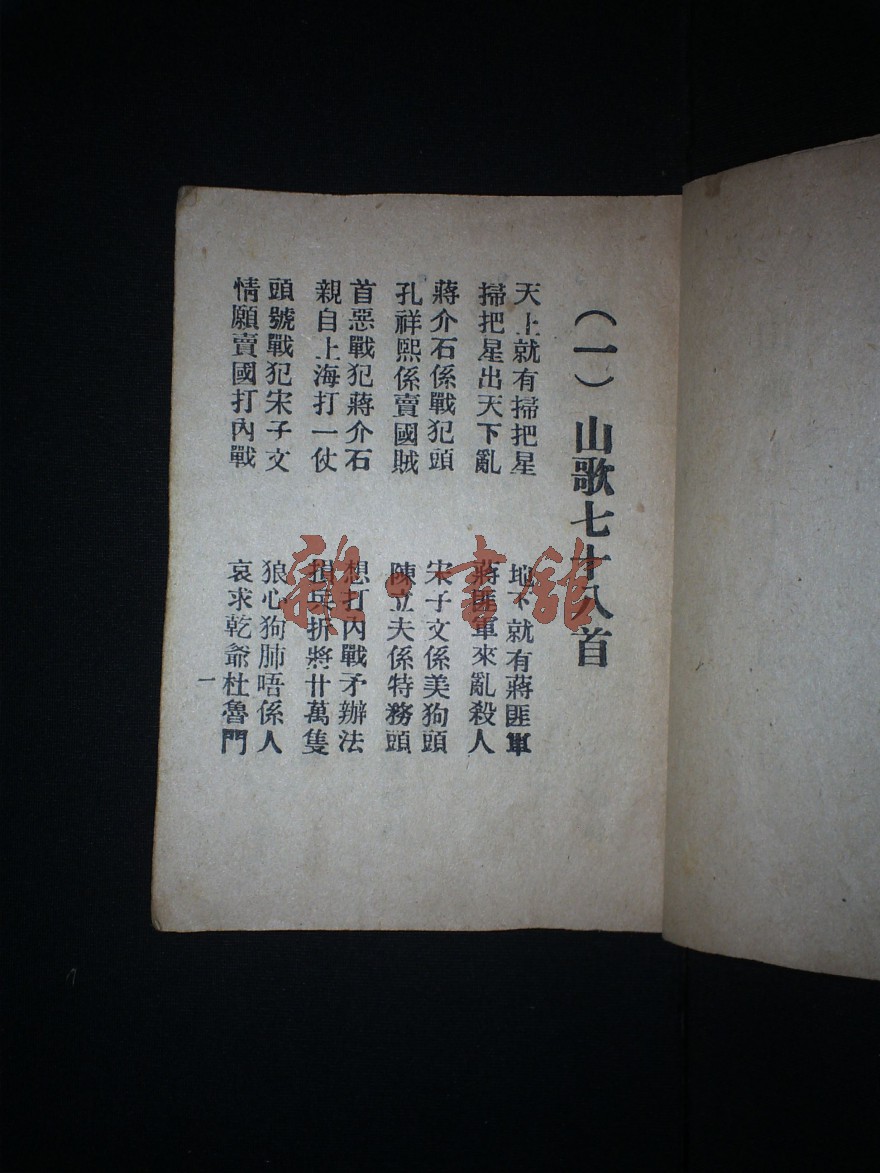 （一）山歌七十八首
天上就有掃把星　地下就有蔣匪軍
掃把星出天下亂　蔣匪軍來亂殺人
蔣介石係戰犯頭　宋子文係美狗頭
孔祥熙係賣國賊　陳立夫係特務頭
首惡戰犯蔣介石　想打內戰矛辦法
親自上海打一仗　損兵折將廿萬隻
頭號戰犯宋子文　狼心狗肺唔係人
情願賣國打內戰　哀求乾爺杜魯門
一
雜·書館